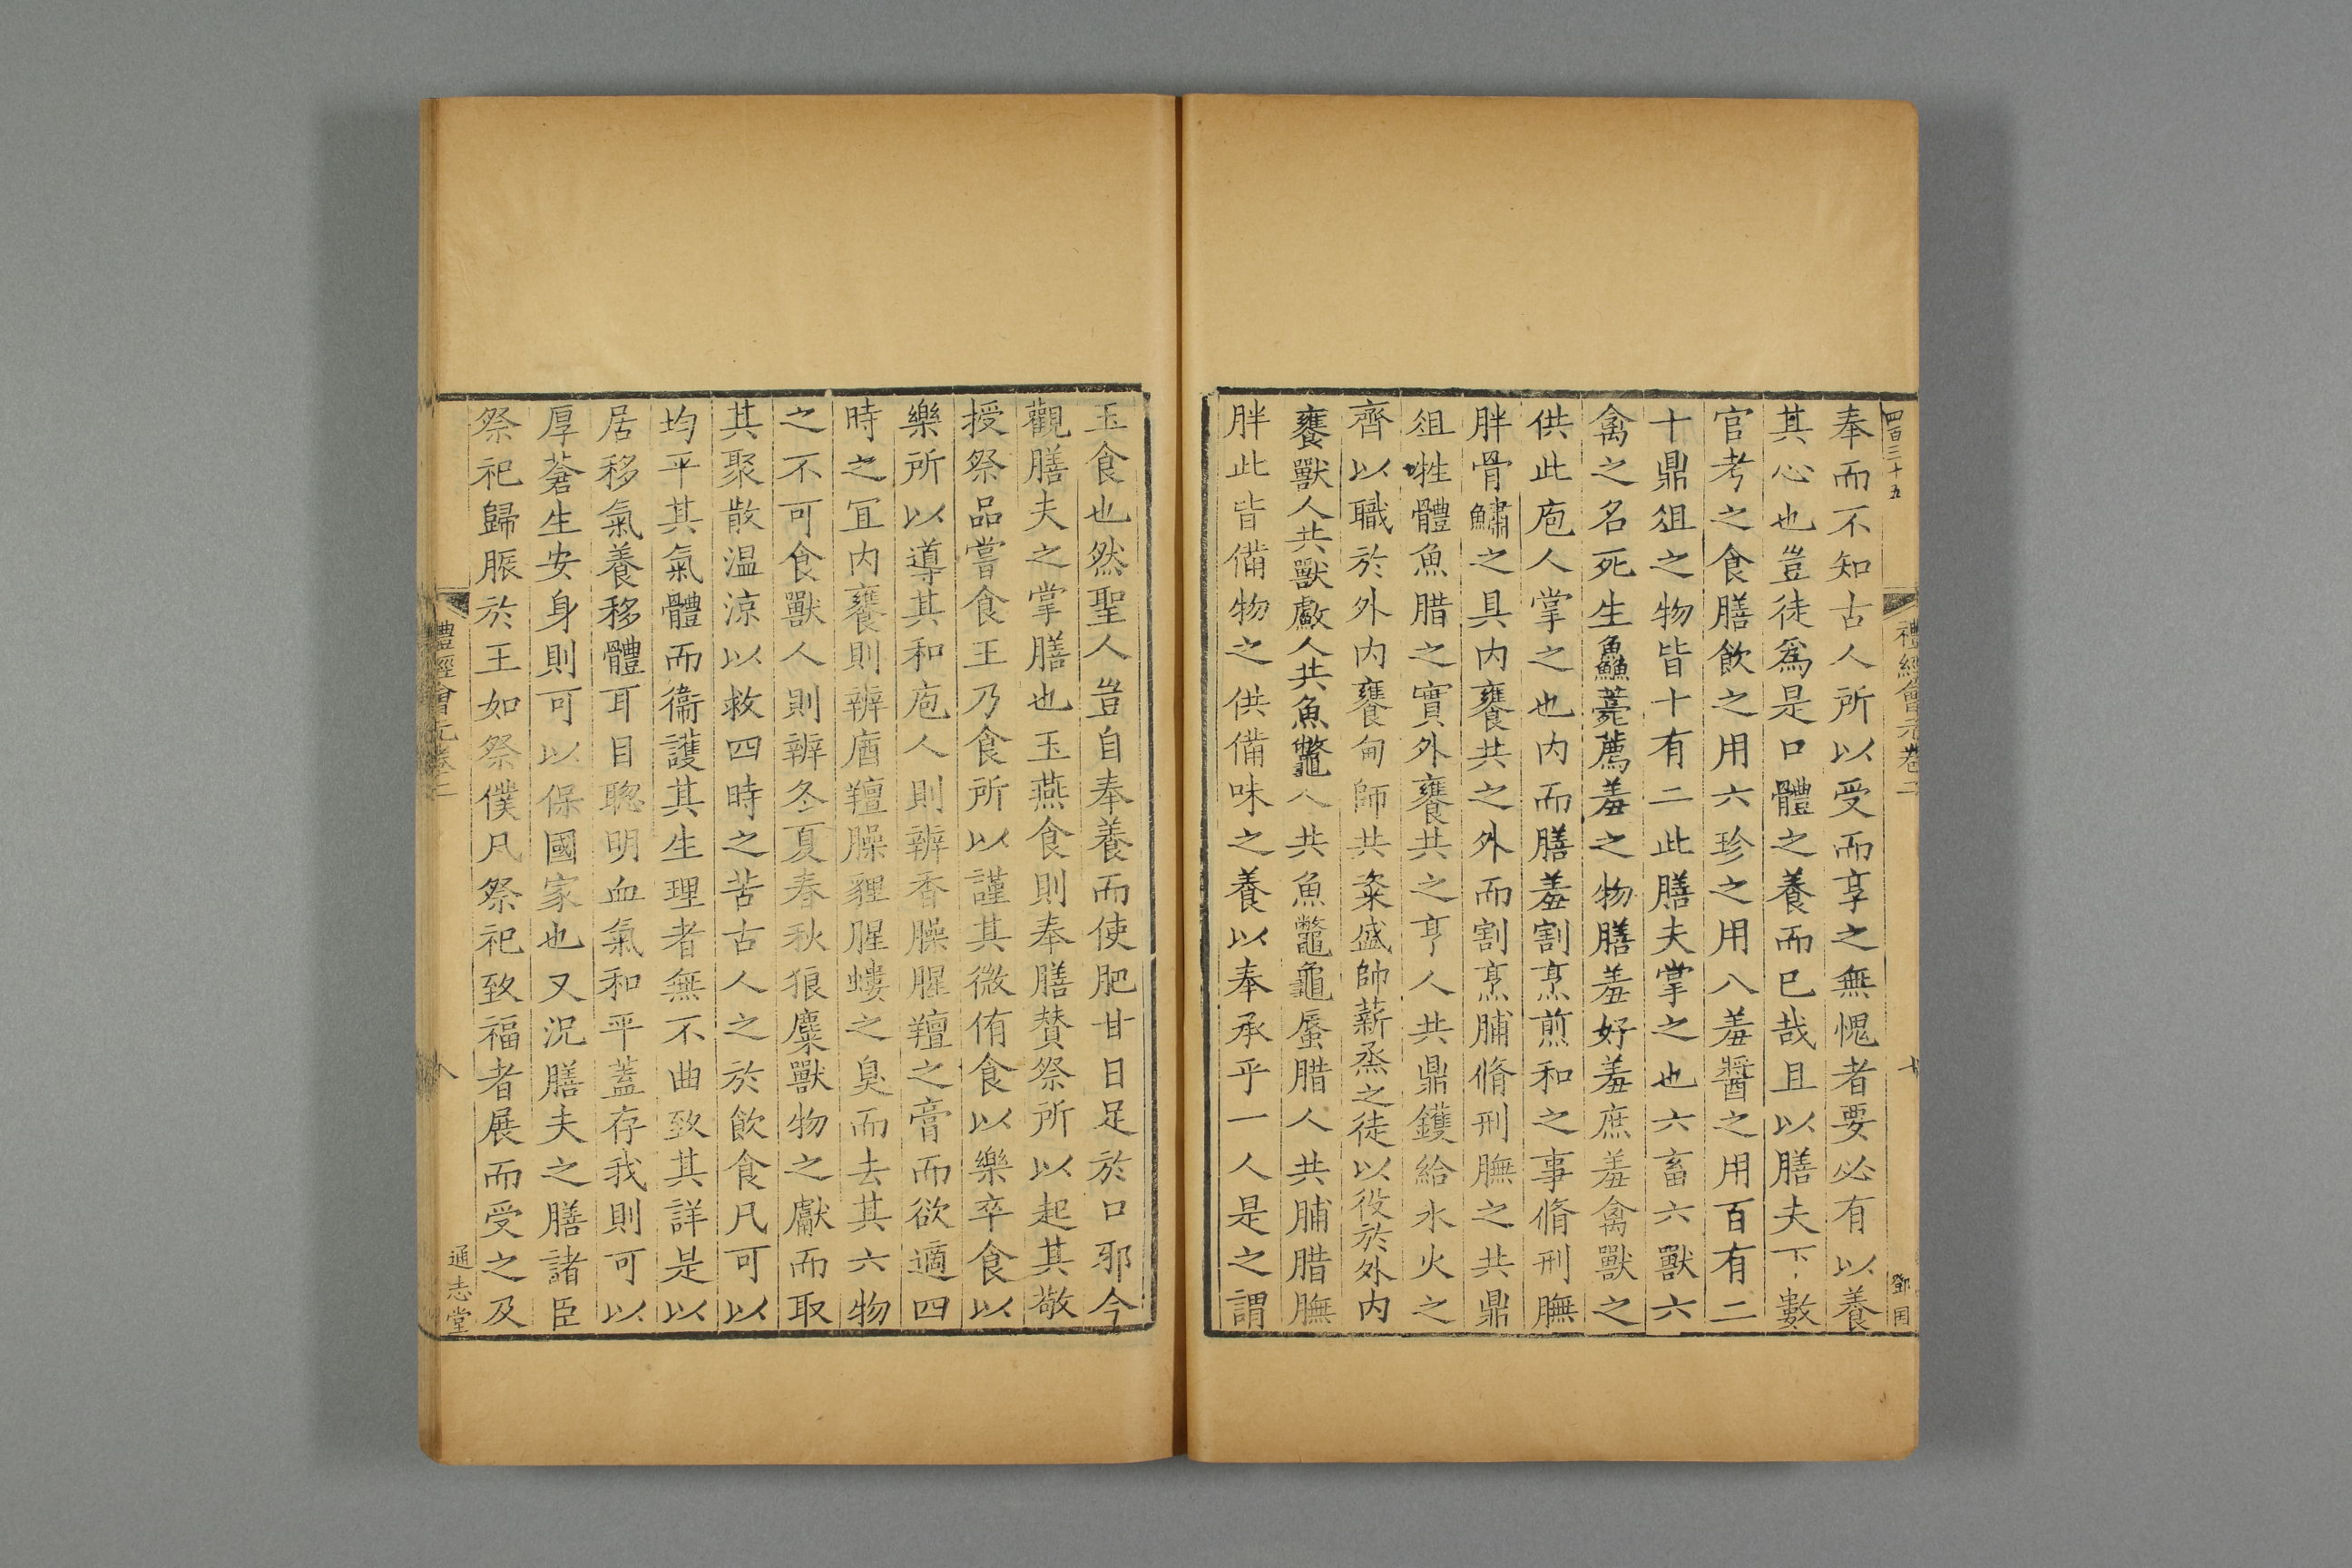 四百三十五
禮經會元卷二
七
鄧国
奉而不知古人所以受而享之無愧者要必有以養
其心也豈徒爲是口體之養而已哉且以膳夫下數
官考之食膳飲之用六珍之用八羞醬之用百有二
十鼎俎之物皆十有二此膳夫掌之也六畜六獸六
禽之名死生鱻薧薦羞之物膳羞好羞庶羞禽獸之
供此庖人掌之也内而膳羞割烹煎和之事脩刑膴
胖骨鱐之具内饔共之外而割烹脯脩刑膴之共鼎
俎牲體魚腊之實外饔共之亨人共鼎鑊給水火之
齊以職於外内饔甸師共粢盛帥薪烝之徒以役於外内
饔獸人共獸䱷人共魚鼈人共魚鼈龜蜃腊人共脯腊膴
胖此皆備物之供備味之養以奉承乎一人是之謂
玉食也然聖人豈自奉養而使肥甘日足於口邪今
觀膳夫之掌膳也玉燕食則奉膳贊祭所以起其敬
授祭品嘗食王乃食所以謹其微侑食以樂卒食以
樂所以導其和庖人則辨香臊腥羶之膏而欲適四
時之宜内饔則辨庮羶臊貍腥螻之臭而去其六物
之不可食獸人則辨冬夏春秋狼麋獸物之獻而取
其聚散温涼以救四時之苦古人之於飲食凡可以
均平其氣體而衞護其生理者無不曲致其詳是以
居移氣養移體耳目聦明血氣和平蓋存我則可以
厚蒼生安身則可以保國家也又况膳夫之膳諸臣
祭祀歸脤於王如祭僕凡祭祀致福者展而受之及
禮經會元卷二
八
通志堂